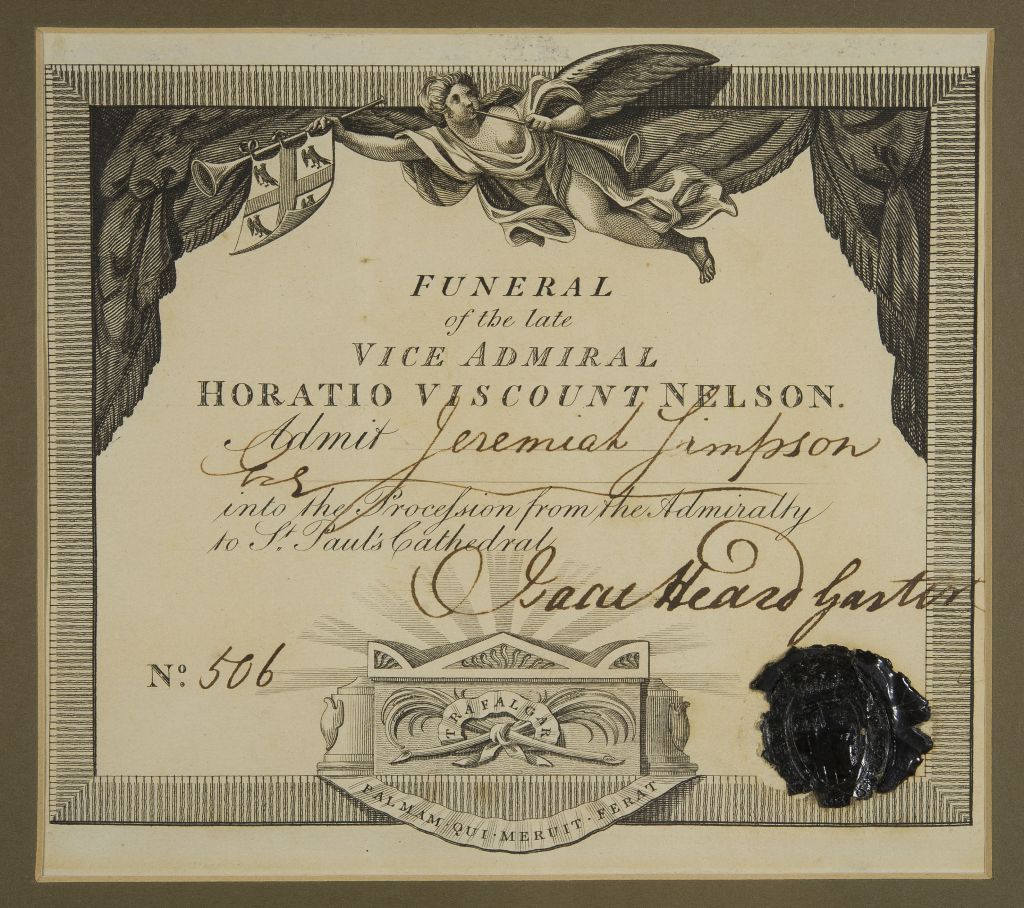 FUNERAL
of the late
VICE ADMIRAL
HORATIO VISCOUNT NELSON.
Admit Jeremiah Simpson
into the Procession from the Admiralty
to St. Paul's Cathedral
Isaac Heard Garter
No. 506
TRAFALGAR
PALMAM · QUI · MERUIT · FERAT